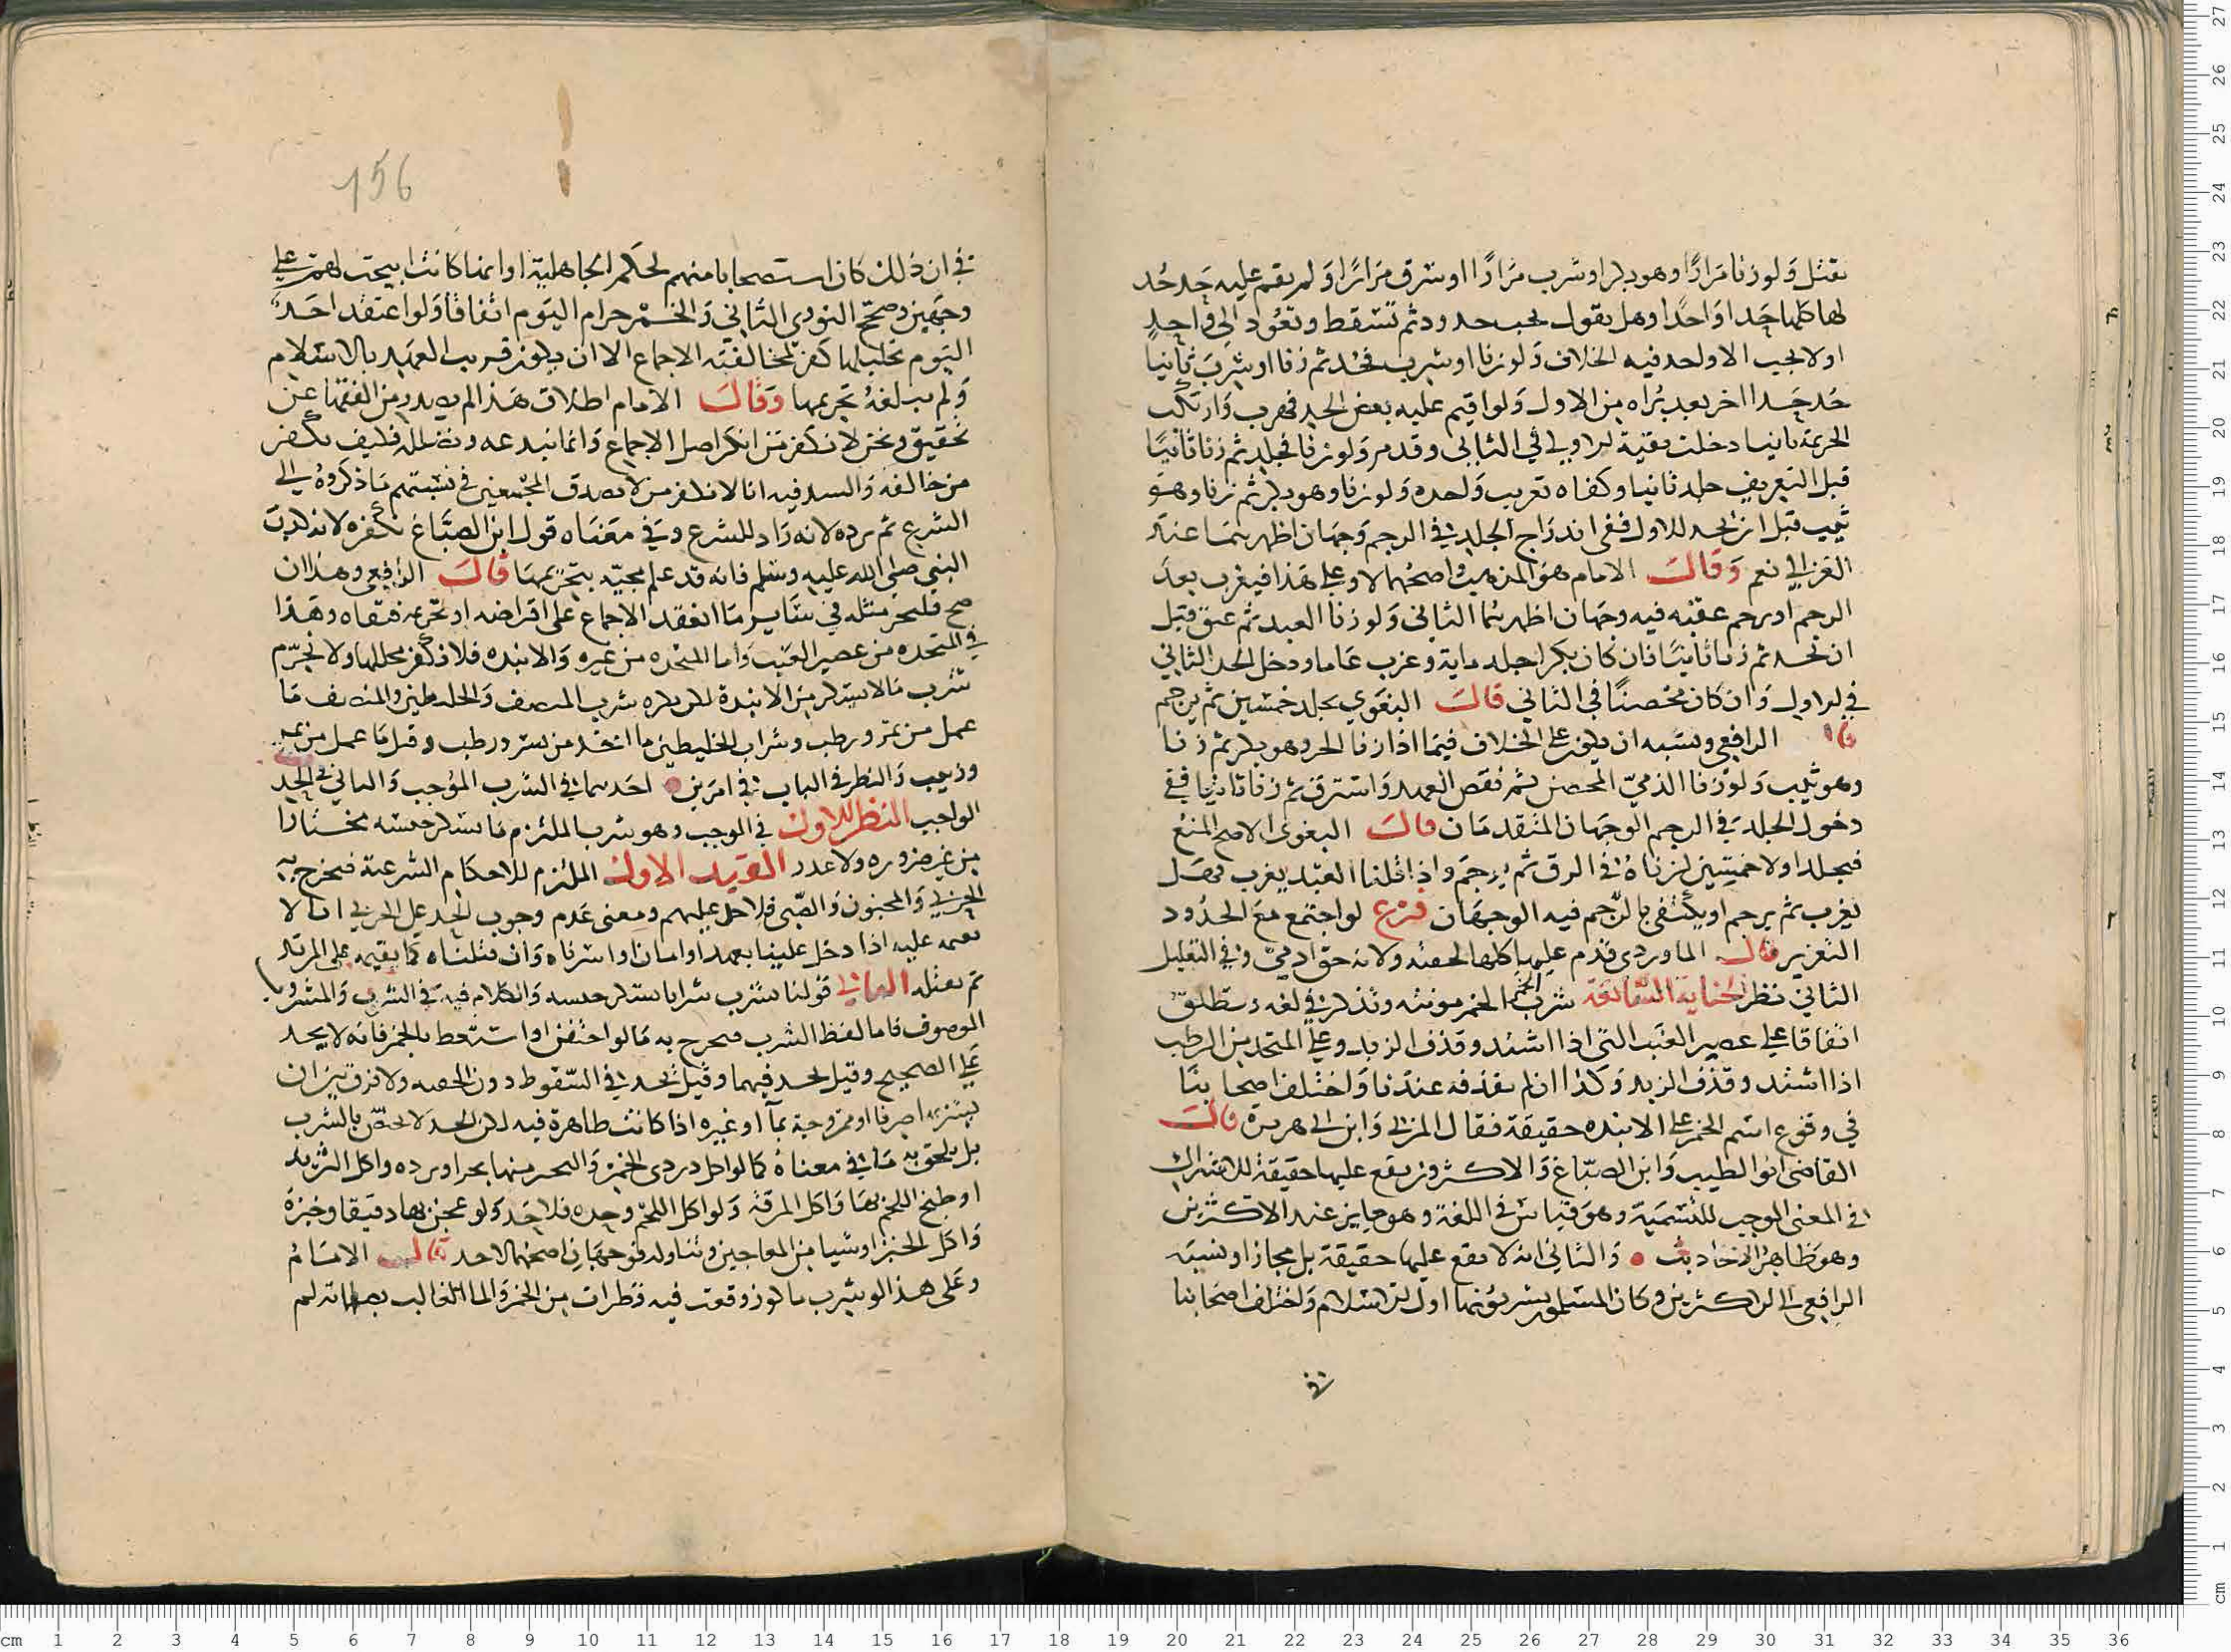 يقتل ولو زنا مرارًا وهو بكر او شرب مرارًا او سرق مرارًا ولم يقم عليه حد حُد
لها كلها حدا واحدًا وهل يقول يجب حدود ثم تسقط وتعود الى واحد
او لا يجب الا واحد فيه الخلاف ولو زنا او شرب فحُد ثم زنا او شرب ثانيا
حُد حدا اخر بعد بُراه من الاول ولو اقيم عليه بعض الحد فهرب وارتكب
الجريمة ثانيا دخلت بقية الاولى في الثاني وقد مر ولو زنا فجلد ثم زنا ثانيًا
قبل التغريب جلد ثانيا وكفاه تغريب واحد ولو زنا وهو بكر ثم زنا وهو
ثيب قبل ان يحد للاول ففى اندراج الجلد في الرجم وجهان اظهرهما عند
الغزالي نعم وقال الامام هو المذهب واصحهما لا وعلى هذا فيغرب بعد
الرجم او يرجم عقبه فيه وجهان اظهرهما الثانى ولو زنا العبد ثم عتق قبل
ان يحد ثم زنا ثانيًا فان كان بكرا جلد ماية وغرب عاما ودخل الحد الثاني
في الاول وان كان محصنًا في الثاني قال البغوي يجلد خمسين ثم يرجم
قال الرافعي ويشبه ان يكون على الخلاف فيما اذا زنا الحر وهو بكر ثم زنا
وهو ثيب ولو زنا الذميّ المحصن ثم نقض العهد واسترق ثم زنا ثانيا ففي
دخول الجلد في الرجم الوجهان المتقدمان قال البغوى الاصح المنع
فيجلد اولا خمسين لزناه في الرق ثم يرجم واذا قلنا العبد يغرب فهل
يغرب ثم يرجم او يكتفى بالرجم فيه الوجهان فرع لو اجتمع مع الحدود
التعزير قال الماوردى قدم عليها كلها لخفته ولانه حق ادميّ وفي التعليل
الثاني نظر الجناية السابعة شرب الخمر الخمر مونثه وتذكر في لغه وتطلق
اتفاقا على عصير العنب التى اذا اشتد وقذف الزبد وعلى المتخد من الرطب
اذا اشتد وقذف الزبد وكذا ان لم يقذفه عندنا واختلف اصحابنا
في وقوع اسم الخمر على الانبذه حقيقة فقال المزني وابن ابي هريرة قال
القاضى ابو الطيب وابن الصباغ والاكثرون يقع عليها حقيقة للاشتراك
في المعنى الموجب للتسمية وهو قياس في اللغة وهو جايز عند الاكثرين
وهو ظاهر الاحاديث والثاني انه لا يقع عليها حقيقة بل مجازا ونسبه
الرافعي الى الاكثرين وكان المسلمون يشربونها اول الاسلام واختلف اصحابنا
في
156
في ان ذلك كان استصحابا منهم لحكم الجاهلية او انما كانت ابيحت لهم على
وجهين وصحح النووى الثاني والخمر حرام اليوم اتفاقا ولو اعتقد احد
اليوم تحليلها كفر لمخالفته الاجماع الا ان يكون قريب العهد بالاسلام
ولم يبلغه تحريمها وقال الامام اطلاق هذا لم يصدر من الفقها عن
تحقيق ونحن لا نكفر من انكر اصل الاجماع وانما نبدعه ونضلله فكيف نكفر
من خالفه والسر فيه انا لا نكفر من لا يصدق المجمعين في نسبتهم ما ذكروه الى
الشرع ثم يرده لانه راد للشرع وفي معناه قول ابن الصباغ نكفره لانه كذب
النبي صلى الله عليه وسلم فانه قد علم مجيّه بتحريمها قال الرافعي وهذا ان
صح فليجر مثله في ساير ما انعقد الاجماع على افتراضه او تحريمه فنفاه وهذا
في المتخده من عصير العنب واما المتخده من غيره والانبذه فلا نكفر محللها ولا يحرم
شرب ما لا يسكر من الانبذة لكن يكره شرب المنصف والخليطين والمنصف ما
عمل من تمر ورطب وشراب الخليطين ما اتخد من بسر ورطب وقيل ما عمل من تمر
وزبيب والنظر في الباب في امرين احدهما في الشرب الموجب والثاني في الحد
الواجب النظر الاول في الموجب وهو شرب الملتزم ما يسكر جنسه مختارا
من غير ضروره ولا عذر القيد الاول الملتزم للاحكام الشرعية فيخرج به
الحربي والمجنون والصبي فلا حد عليهم ومعنى عدم وجوب الحد على الحربي انا لا
نقيمه عليه اذا دخل علينا بعهد او امان او اسرناه وان قتلناه كما يقيمه على المرتد
ثم نقتله الثاني قولنا شرب شرابا يسكر جنسه والكلام فيه في الشرب والمشروب
الموصوف فاما لفظ الشرب فيخرج به ما لو احتقن او استعط بالخمر فانه لا يحد
على الصحيح وقيل يحد فيهما وقيل يحد في السعوط دون الحقنه ولا فرق بين ان
يشربها صرفا او ممزوجة بما او غيره اذا كانت ظاهرة فيه لكن الحد لا يختص بالشرب
بل يلحق به ما في معناه كما لو اكل دردى الخمر والتخين منها بخبز او ثرده واكل الثريد
او طبخ اللحم بها واكل المرقه ولو اكل اللحم وحده فلا حد ولو عجن بها دقيقا وخبزه
واكل الخبز او شيا من المعاجين وتناوله فوجهان اصحهما لا حد قال الامام
وعلى هذا لو شرب ما كوز وقعت فيه قطرات من الخمر والما الغالب بصفاته لم